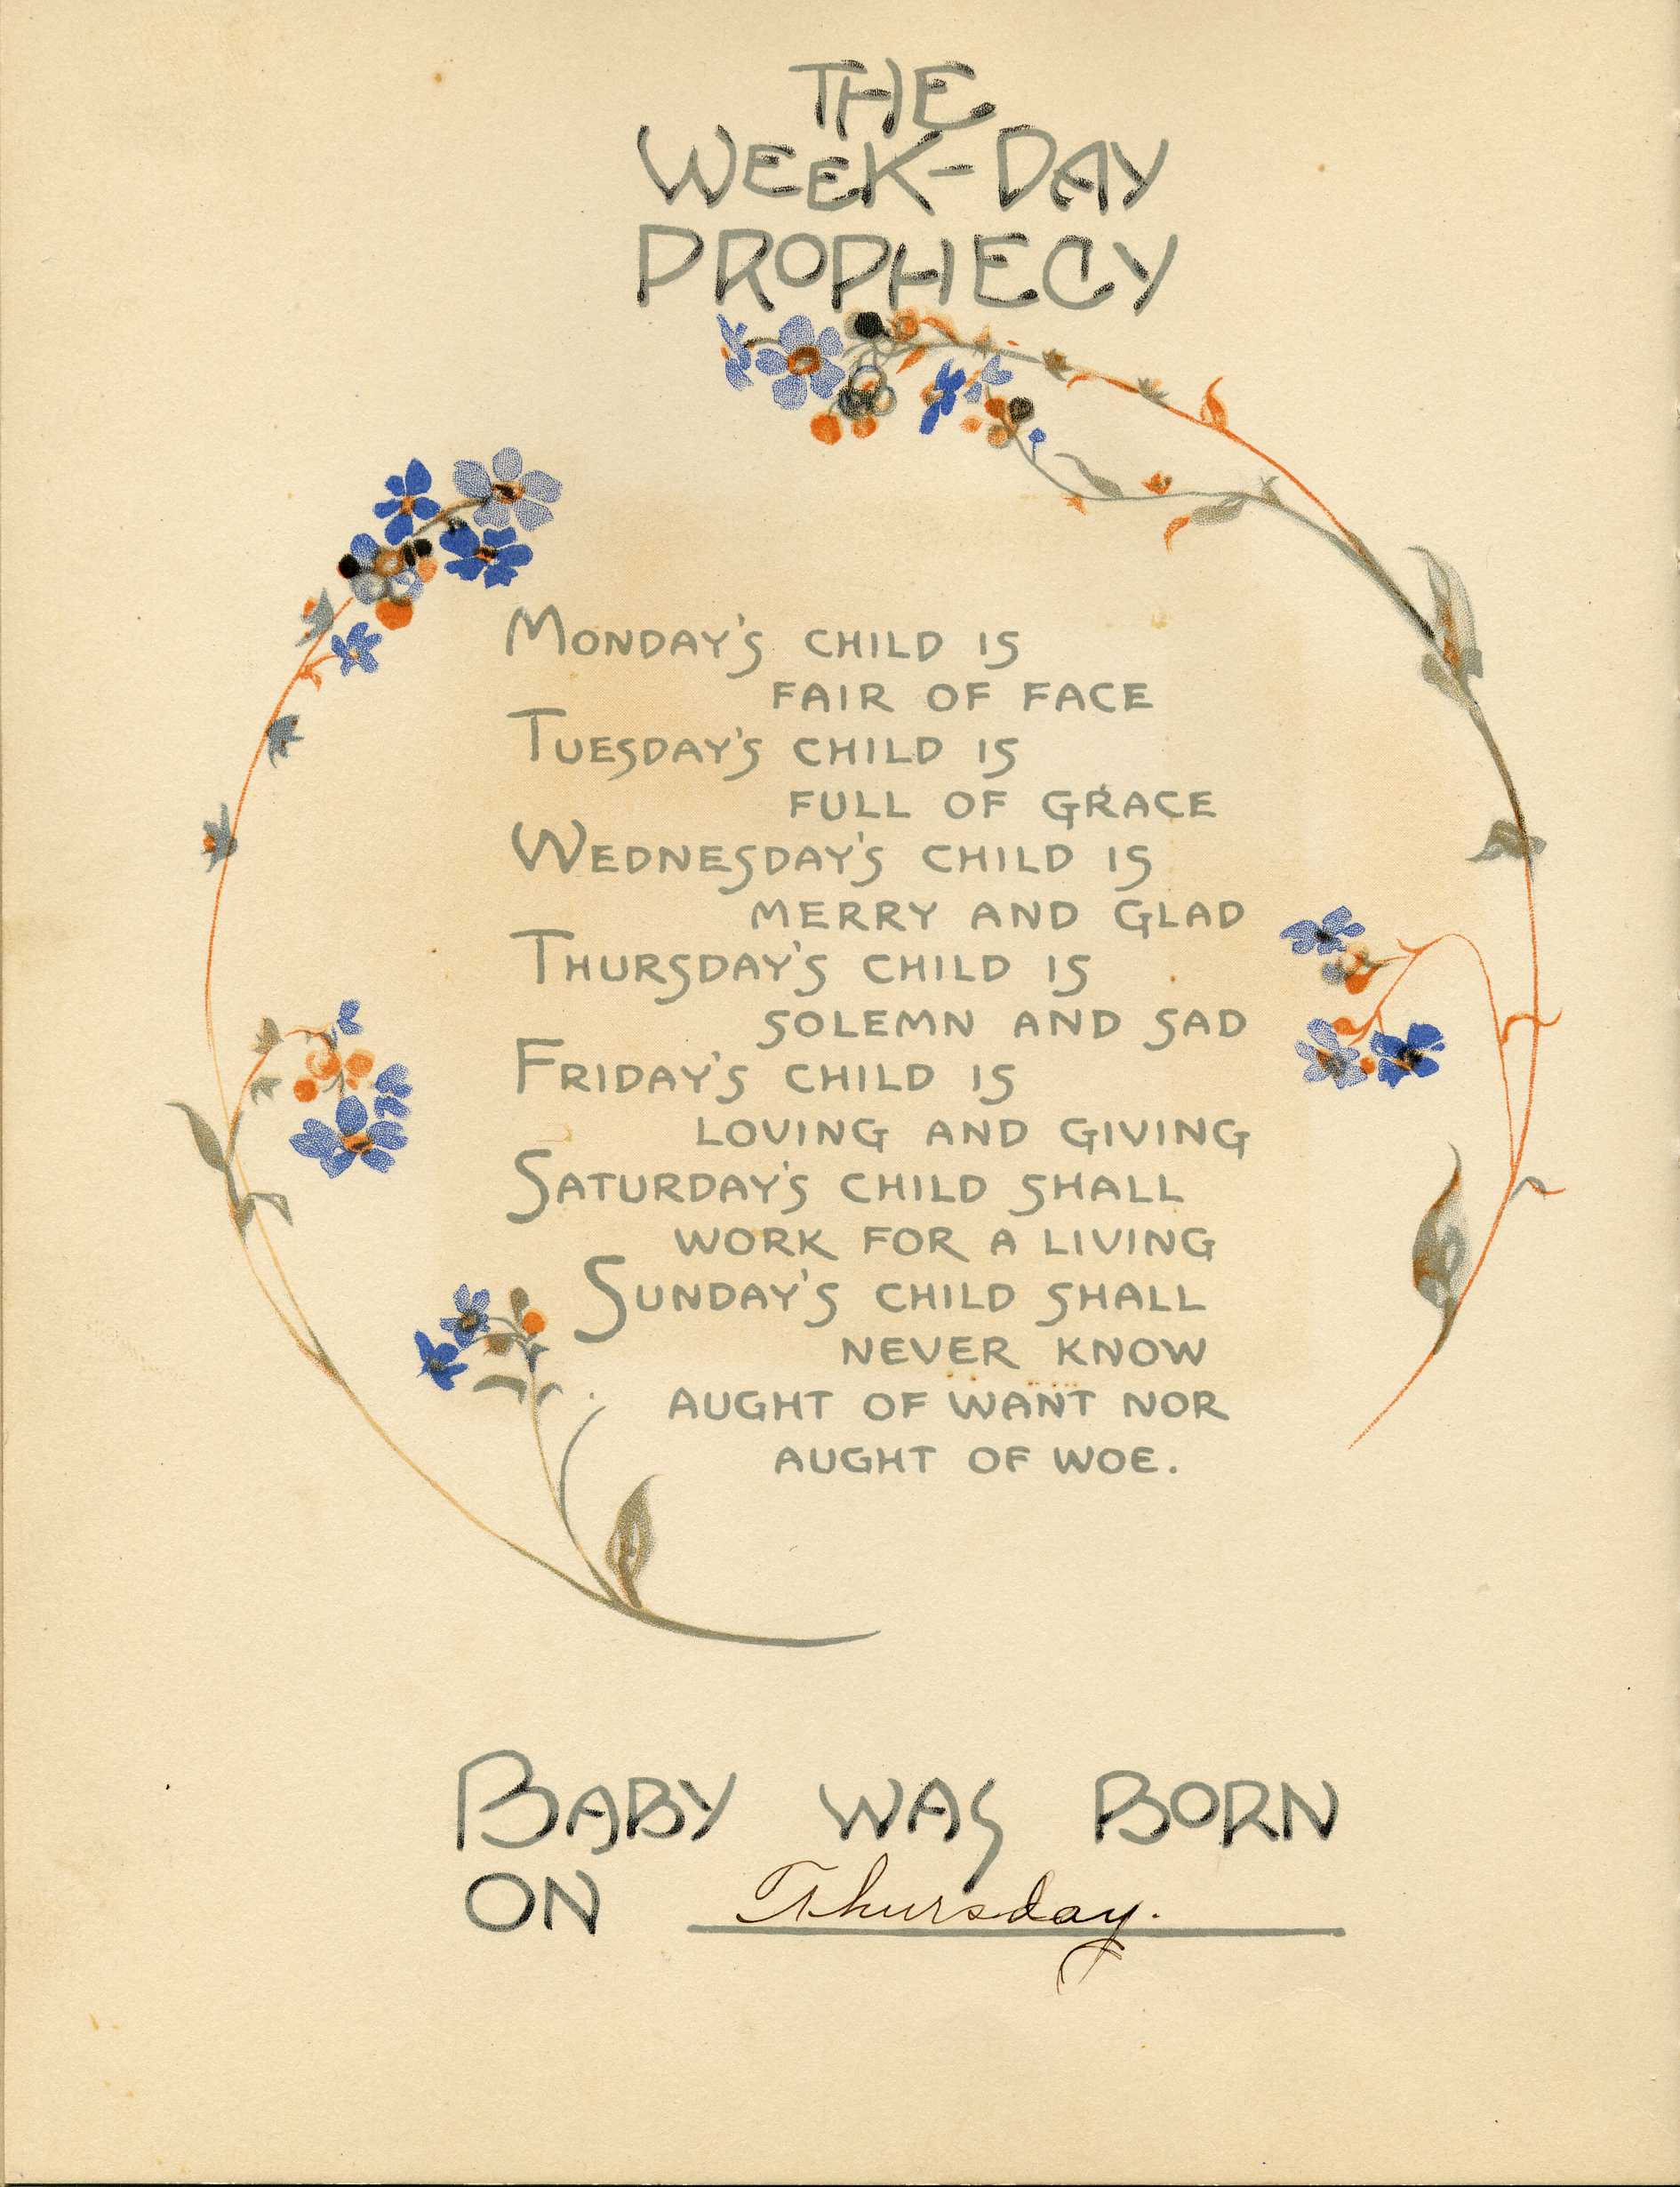 THE
WEEK-DAY
PROPHECY
MONDAY'S CHILD IS
FAIR OF FACE
TUESDAY'S CHILD IS
FULL OF GRACE
WEDNESDAY'S CHILD IS
MERRY AND GLAD
THURSDAY'S CHILD IS
SOLEMN AND SAD
FRIDAY'S CHILD IS
LOVING AND GIVING
SATURDAY'S CHILD SHALL
WORK FOR A LIVING
SUNDAY'S CHILD SHALL
NEVER KNOW
AUGHT OF WANT NOR
AUGHT OF WOE.
BABY WAS BORN
ON Thursday.